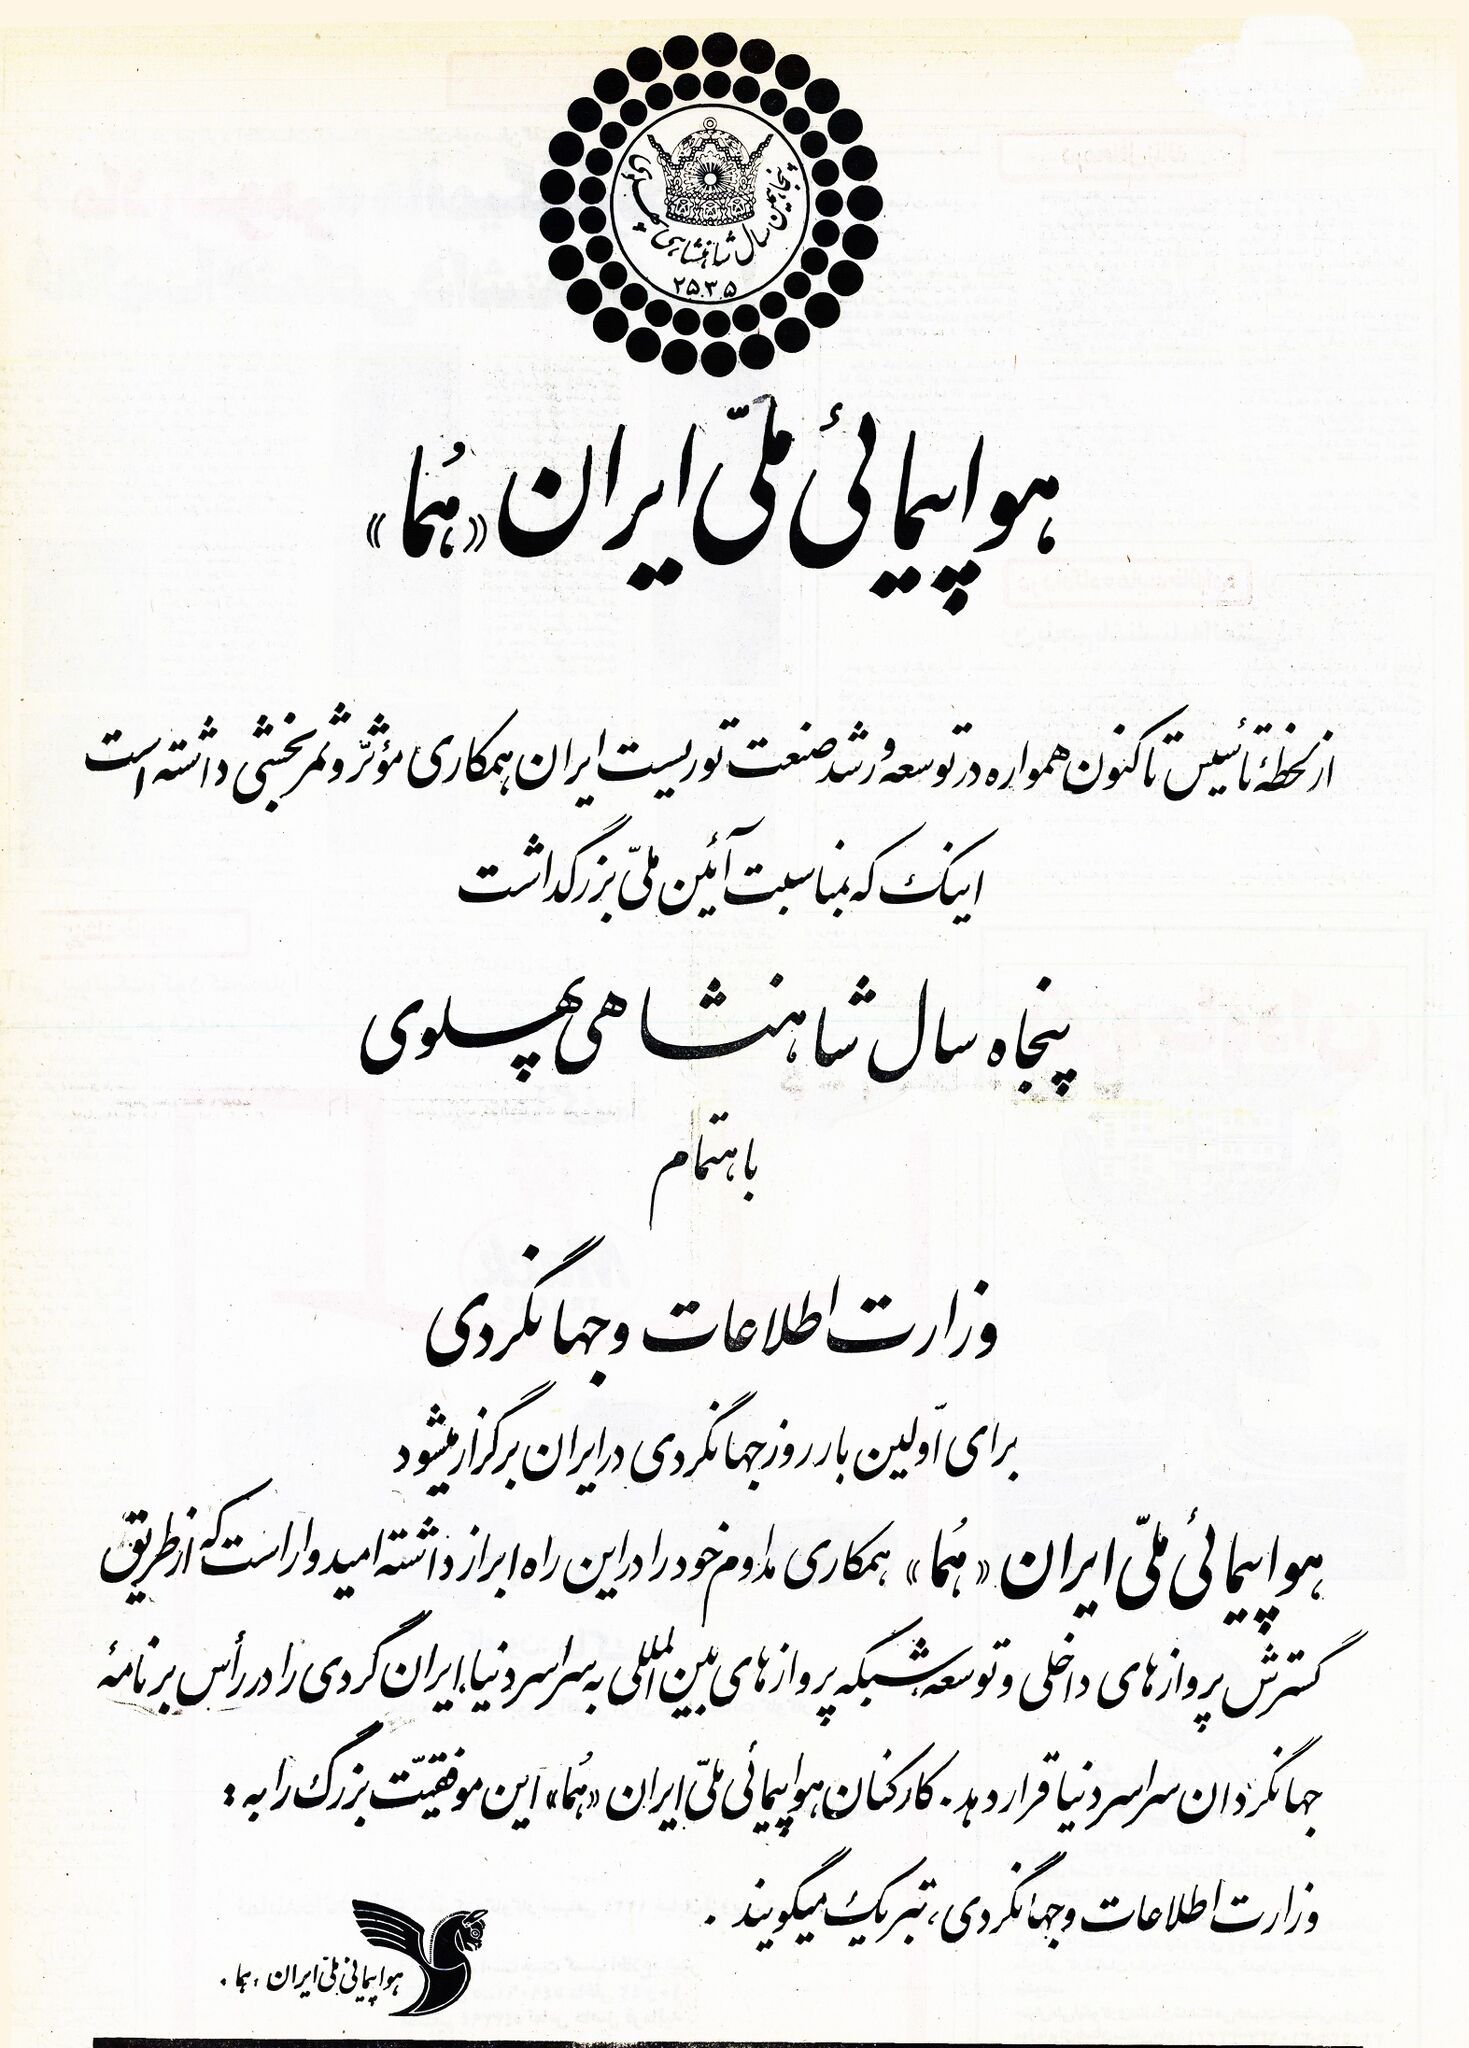 پنجاهمین سال شاهنشاهی پهلوی
۲۵۳۵
هواپیمائی ملّی ایران «هُما»
از لحظهٔ تأسیس تا کنون همواره در توسعه و رشد صنعت توریست ایران همکاری مؤثّر و ثمربخشی داشته است
اینک که بمناسبت آئین ملّی بزرگداشت
پنجاه سال شاهنشاهی پهلوی
باهتمام
وزارت اطلاعات و جهانگردی
برای اوّلین بار روز جهانگردی در ایران برگزار میشود
هواپیمائی ملّی ایران «هُما» همکاری مداوم خود را در این راه ابراز داشته امیدوار است که از طریق
گسترش پروازهای داخلی و توسعه شبکه پروازهای بین المللی به سراسر دنیا، ایران گردی را در رأس برنامهٔ
جهانگردان سراسر دنیا قرار دهد. کارکنان هواپیمائی ملّی ایران «هُما» این موفقیّت بزرگ را به :
وزارت اطلاعات و جهانگردی، تبریک میگویند .
هواپیمائی ملّی ایران، هما.